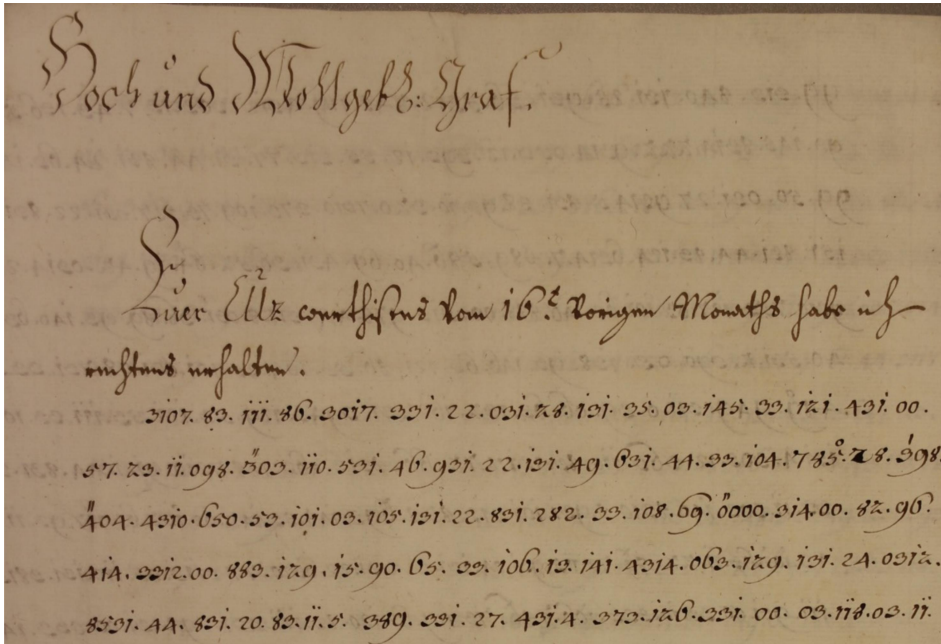 Hoch und Wollgeb: Graf.
Euer Ellz werthistes vom 16t vorigen Monaths habe ich
rechtens erhalten.
3107. 83. 111. 86. 3017. 331. 22. 031. 28. 131. 35. 03. 145. 33. 121. 431. 00.
57. 23. 11. 098. 303. 110. 531. 46. 931. 22. 131. 49. 631. 44. 33. 104. 785. 28. 398.
404. 4310. 650. 53. 101. 03. 105. 131. 22. 831. 282. 33. 108. 69. 0000. 314. 00. 82. 96.
414. 3312. 00. 883. 129. 15. 90. 65. 33. 106. 13. 141. 4314. 063. 129. 131. 24. 0312.
8531. 44. 831. 20. 83. 11. 5. 389. 331. 27. 431. 4. 373. 126. 331. 00. 03. 118. 03. 11.